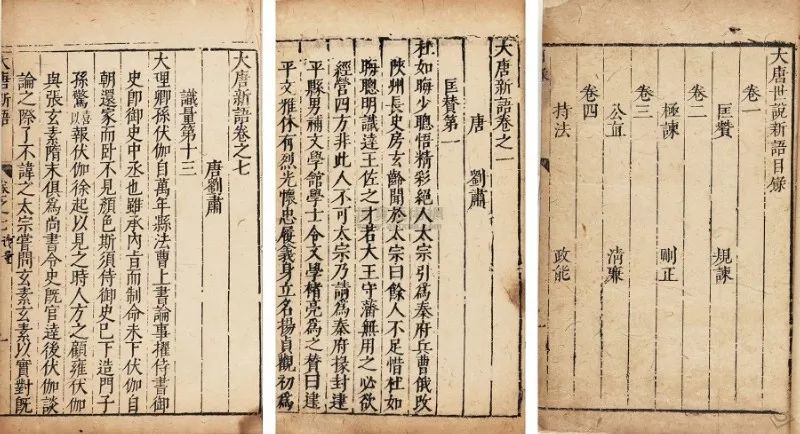 大唐世說新語目錄
卷一
匡贊 規諫
卷二
極諫 剛正
卷三
公直 清廉
卷四
持法 政能
大唐新語卷之一
唐 劉肅
匡贊第一
杜如晦少聰悟精彩絕人太宗引爲秦府兵曹俄改
陝州長史房玄齡聞於太宗曰餘人不足惜杜如
晦聰明識達王佐之才若大王守藩無用之必欲
經營四方非此人不可太宗乃請爲秦府掾封建
平縣男補文學館學士令文學褚亮爲之贊曰建
平文雅休有烈光懷忠履義身立名揚貞觀初爲
大唐新語卷之七
唐劉肅
識量第十三
大理卿孫伏伽自萬年縣法曹上書論事擢侍書御
史即御史中丞也雖承內旨而制命未下伏伽自
朝還家而卧不見顏色斯須侍御史已下造門子
孫驚喜以報伏伽徐起以見之時人方之顧雍伏伽
與張玄素隋末俱爲尚書令史既官達後伏伽談
論之際了不諱之太宗嘗問玄素玄素以實對既
大唐新語